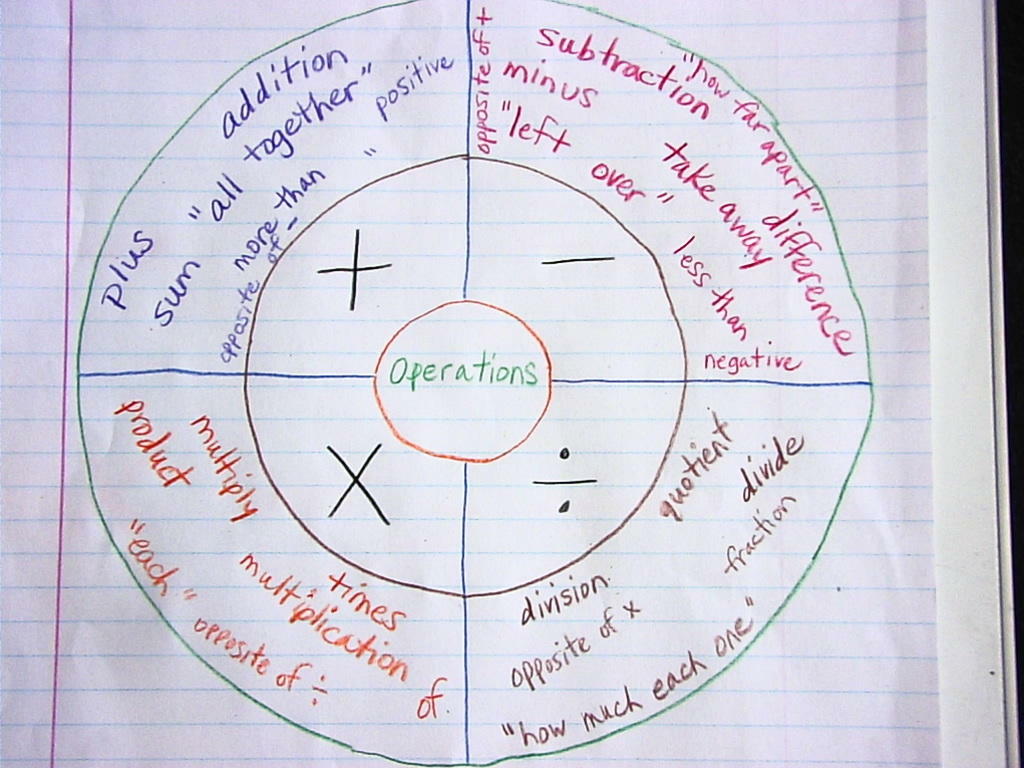 Operations
+
addition
plus
sum
"all together"
positive
"more than"
opposite of -
−
opposite of +
subtraction
minus
"left over"
"how far apart"
take away
difference
less than
negative
×
product
multiply
"each"
times
multiplication
opposite of ÷
of
÷
quotient
divide
fraction
division
opposite of x
"how much each one"